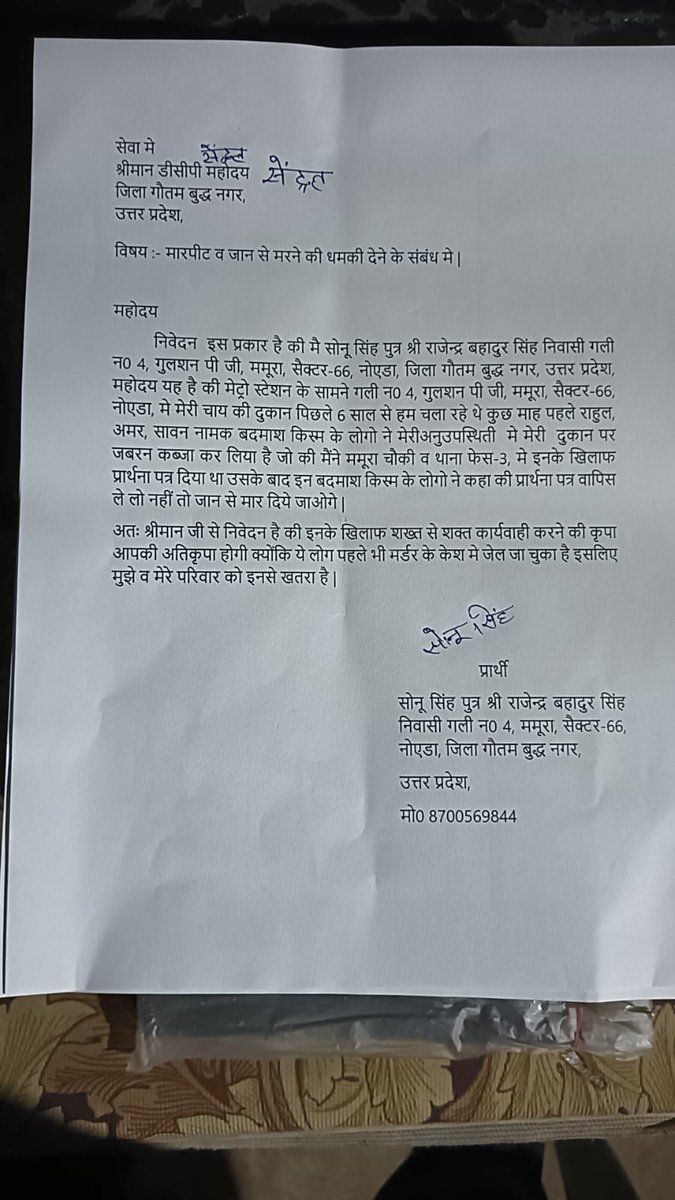 सेवा मे
सेंट्रल
श्रीमान डीसीपी महोदय सेंट्रल
जिला गौतम बुद्ध नगर,
उत्तर प्रदेश,
विषय :- मारपीट व जान से मरने की धमकी देने के संबंध मे |
महोदय
निवेदन इस प्रकार है की मै सोनू सिंह पुत्र श्री राजेन्द्र बहादुर सिंह निवासी गली
न0 4, गुलशन पी जी, ममूरा, सैक्टर-66, नोएडा, जिला गौतम बुद्ध नगर, उत्तर प्रदेश,
महोदय यह है की मेट्रो स्टेशन के सामने गली न0 4, गुलशन पी जी, ममूरा, सैक्टर-66,
नोएडा, मे मेरी चाय की दुकान पिछले 6 साल से हम चला रहे थे कुछ माह पहले राहुल,
अमर, सावन नामक बदमाश किस्म के लोगो ने मेरीअनुउपस्थिती मे मेरी दुकान पर
जबरन कब्जा कर लिया है जो की मैंने ममूरा चौकी व थाना फेस-3, मे इनके खिलाफ
प्रार्थना पत्र दिया था उसके बाद इन बदमाश किस्म के लोगो ने कहा की प्रार्थना पत्र वापिस
ले लो नहीं तो जान से मार दिये जाओगे |
अतः श्रीमान जी से निवेदन है की इनके खिलाफ शख्त से शक्त कार्यवाही करने की कृपा
आपकी अतिकृपा होगी क्योंकि ये लोग पहले भी मर्डर के केश मे जेल जा चुका है इसलिए
मुझे व मेरे परिवार को इनसे खतरा है |
सोनू सिंह
प्रार्थी
सोनू सिंह पुत्र श्री राजेन्द्र बहादुर सिंह
निवासी गली न0 4, ममूरा, सैक्टर-66,
नोएडा, जिला गौतम बुद्ध नगर,
उत्तर प्रदेश,
मो0 8700569844